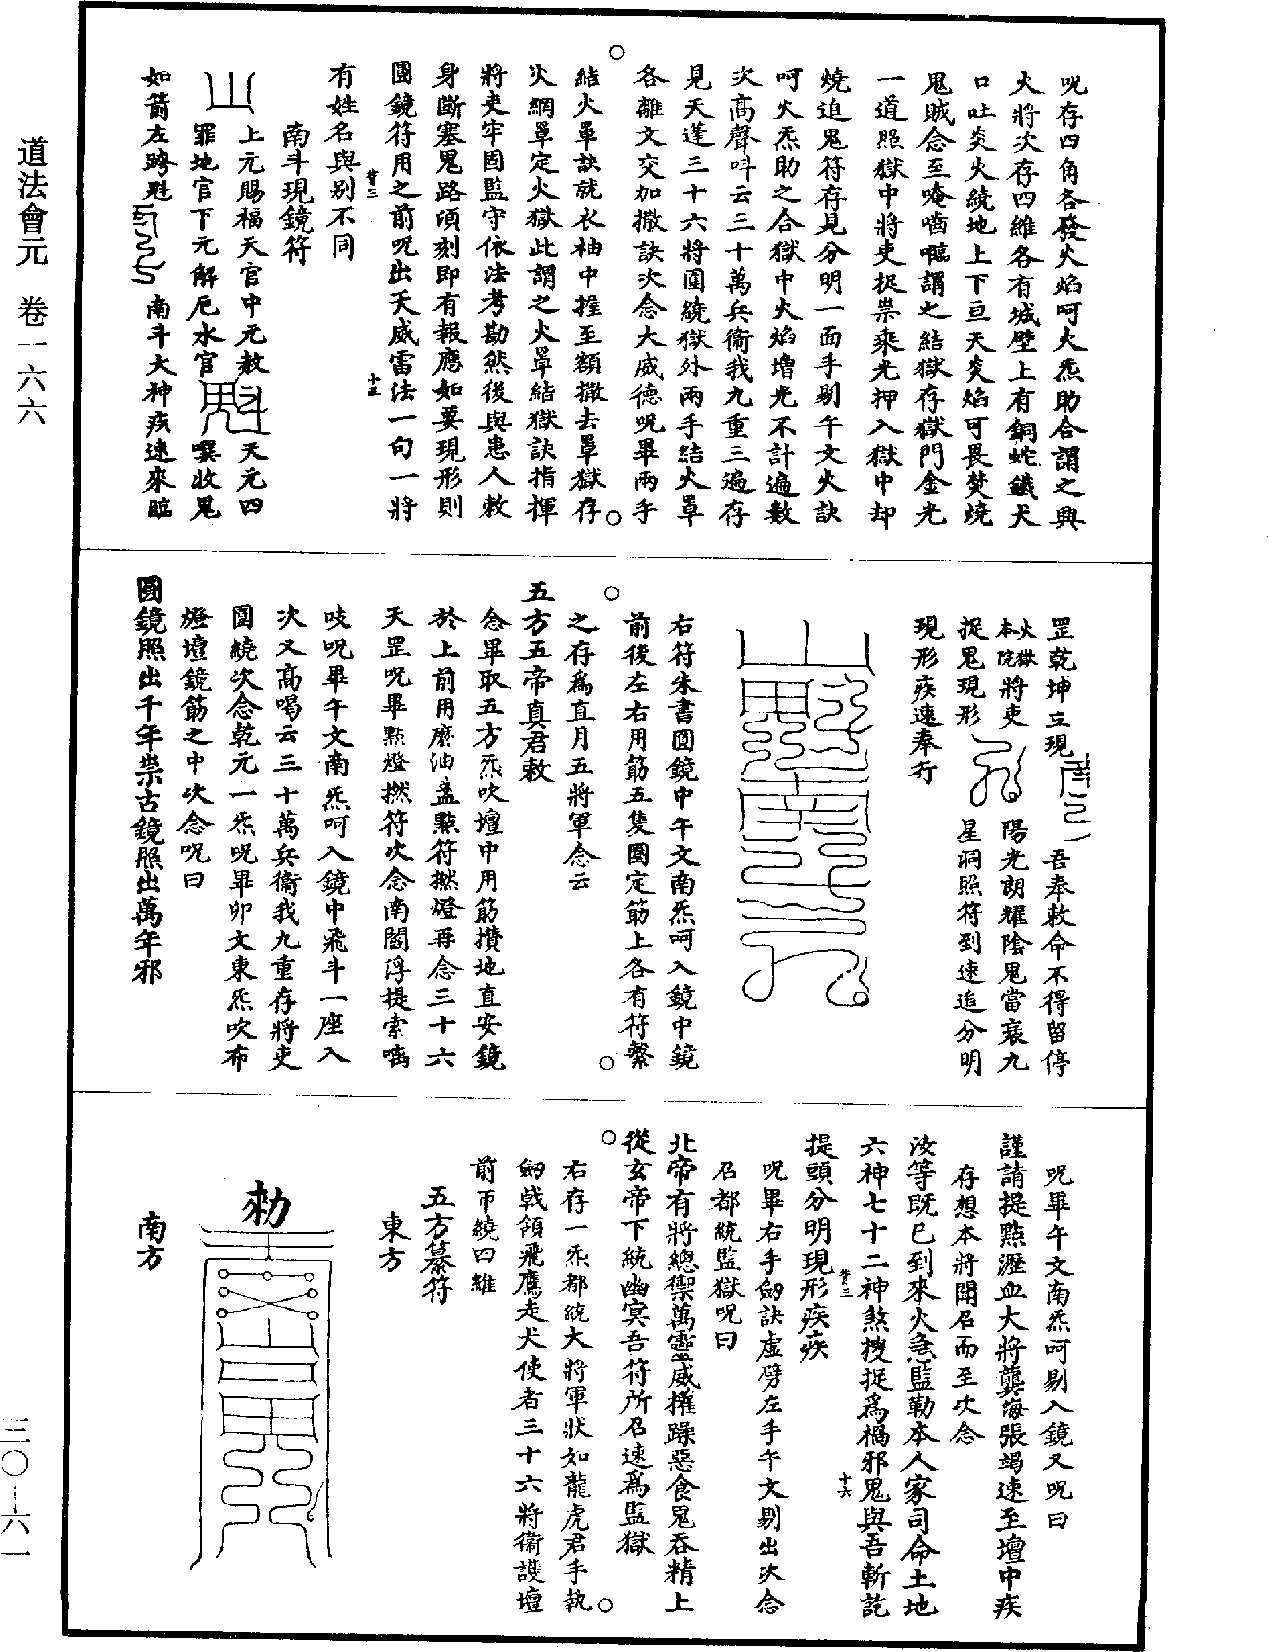 道法會元 卷一六六
三〇—六一
呪存四角各發火焰呵火炁助合謂之興
火將次存四維各有城壁上有銅蛇鐵犬
口吐炎火繞地上下亘天炎焰可畏焚燒
鬼賊念至唵𠺁𠿒謂之結獄存獄門金光
一道照獄中將吏捉祟乘光押入獄中却
燒追鬼符存見分明一面手剔午文火訣
呵火炁助之合獄中火焰增光不計遍數
次高聲呌云三十萬兵衞我九重三遍存
見天蓬三十六將圍繞獄外兩手結火罩
各離文交加撒訣次念大威德呪畢兩手
結火罩訣就衣袖中握至額撒去罩獄存
火網罩定火獄此謂之火罩結獄訣指揮
將吏牢固監守依法考勘然後與患人敕
身斷塞鬼路頃刻即有報應如要現形則
圓鏡符用之前呪出天威雷法一句一將
有姓名與别不同
南斗現鏡符
上元賜福天官中元赦 天元四
罪地官下元解厄水官 噀收鬼
如箭左跨魁 南斗大神疾速來臨
罡乾坤立現 吾奉敕命不得留停
火獄本院將吏 陽光朗耀陰鬼當衰九
捉鬼現形 星洞照符到速追分明
現形疾速奉行
右符朱書圓鏡中午文南炁呵入鏡中鏡
前後左右用筯五隻圍定筯上各有符繫
之存爲直月五將軍念云
五方五帝真君敕
念畢取五方炁吹壇中用筯攢地直安鏡
於上前用麻油盞點符撚燈再念三十六
天罡呪畢點燈撚符次念南閻浮提索㗶
吱呪畢午文南炁呵入鏡中飛斗一座入
次又高喝云三十萬兵衞我九重存將吏
圍繞次念乾元一炁呪畢卯文東炁吹布
燈壇鏡筯之中次念呪曰
圓鏡照出千年祟古鏡照出萬年邪
呪畢午文南炁呵剔入鏡又呪曰
謹請提點瀝血大將龔海張竭速至壇中疾
存想本將聞召而至次念
汝等既已到來火急監勒本人家司命土地
六神七十二神煞搜捉爲禍邪鬼與吾斬訖
提頭分明現形疾疾
呪畢右手劒訣虛劈左手午文剔出次念
召都統監獄呪曰
北帝有將總禦萬靈威權躁惡食鬼吞精上
從玄帝下統幽冥吾符所召速爲監獄
右存一炁都統大將軍狀如龍虎君手執
劒戟領飛鷹走犬使者三十六將衞護壇
前帀繞四維
五方纂符
東方
敕
南方